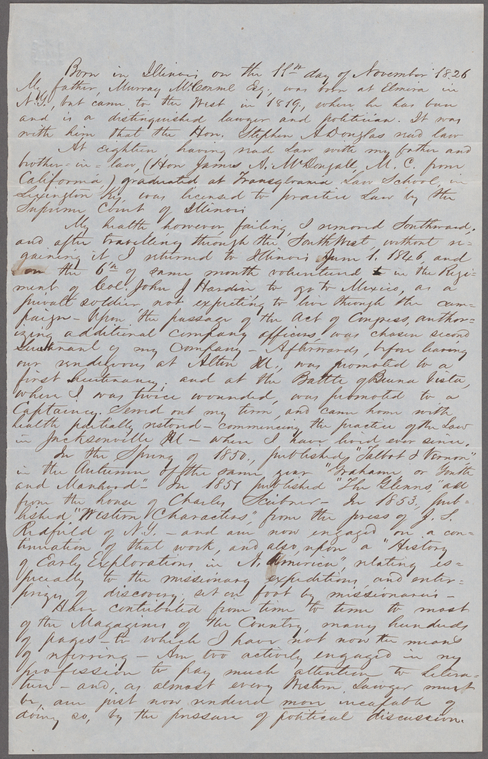 Born in Illinois, on the 11th day of November 1826
My father, Murray McConnel Esq., was born at Elmira in
N.Y., but came to the West in 1819, where he has been
and is a distinguished lawyer and politician. It was
with him that the Hon. Stephen A Douglas read law
At eighteen having read Law with my father and
brother-in-law (Hon James A. McDougall, M.C. from
California) graduated at Transylvania Law School, in
Lexington Ky. was licensed to practice Law by the
Supreme Court of Illinois
My health however failing, I removed Southward,
and after travelling through the SouthWest, without re-
gaining it I returned to Illinois June 1. 1846, and
on the 6th of same month volunteered in the Regi-
ment of Col. John J Hardin to go to Mexico, as a
private soldier, not expecting to live through the cam-
paign - Upon the passage of the Act of Congress, author-
izing additional company officers, was chosen second
Lieutenant of my company - Afterwards, before leaving
our rendezvous at Alton Ill., was promoted to a
first Lieutenancy, and at the Battle of Buena Vista,
where I was twice wounded, was promoted to a
Captaincy. Served out my term, and came home with
health partially restored - commenced the practice of the Law
in Jacksonville Ill - where I have lived ever since.
In the Spring of 1850, published "Talbot & Vernon"
in the Autumn of the same year "Grahame or Youth
and Manhood" - In 1851 published "The Glenns" all
from the house of Charles Scribner - In 1853, pub-
lished "Western Characters," from the press of J. S.
Redfield of N.Y. - and am now engaged on a con-
tinuation of that work, and also upon a "History
of Early Explorations in N. America", relating es-
pecially to the missionary expeditions, and enter-
prizes of discovery, set on foot by missionaries -
Have contributed from time to time to most
of the Magazines of the Country many hundreds
of pages - to which I have not now the means
of referring - Am too actively engaged in my
profession to pay much attention to litera-
ture - and, as almost every Western Lawyer must
be, am just now rendered more incapable of
doing so, by the pressure of political discussion.